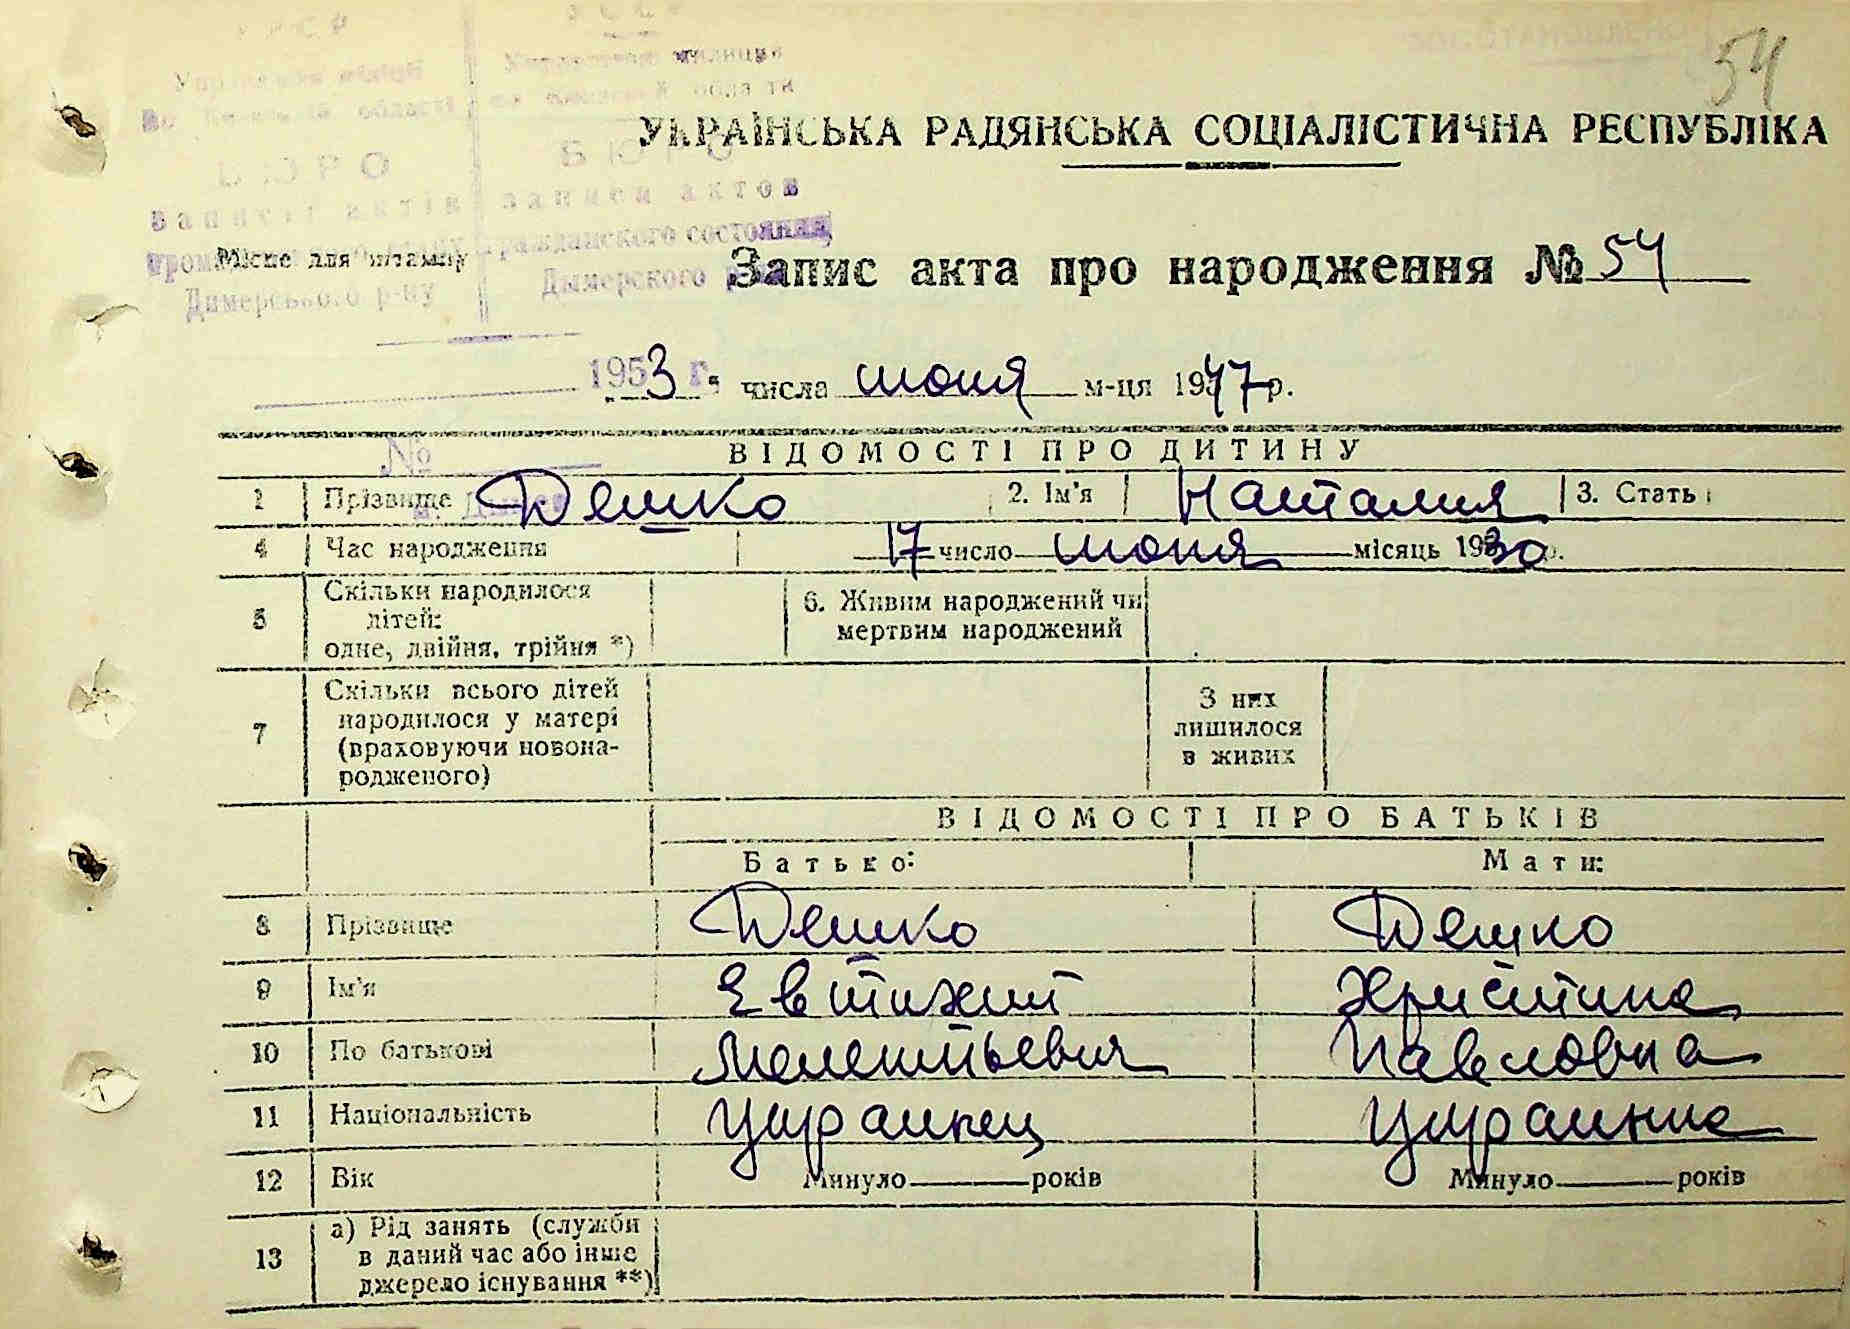 54
УССР
Управління міліції Управление милиции
по Київській області по Киевской области
БЮРО БЮРО
записі актів записи актов
громадянського стану гражданского состояния
Димерського р-ну Дымерского р-на
УКРАЇНСЬКА РАДЯНСЬКА СОЦІАЛІСТИЧНА РЕСПУБЛІКА
Місце для штампу
Запис акта про народження № 54
195 г.
3 числа июня м-ця 1947 р.
№
ВІДОМОСТІ ПРО ДИТИНУ
1 Прізвище Дешко 2. Ім'я Наталия 3. Стать
4 Час народження 17 число июня місяць 1930 р.
5 Скільки народилося
дітей:
одне, двійня, трійня *)
6. Живим народжений чи
мертвим народжений
7 Скільки всього дітей
народилося у матері
(враховуючи новона-
родженого)
З них
лишилося
в живих
ВІДОМОСТІ ПРО БАТЬКІВ
Батько: Мати:
8 Прізвище Дешко Дешко
9 Ім'я Евтихий Христина
10 По батькові Мелентьевич Павловна
11 Національність Украинец Украинка
12 Вік Минуло років Минуло років
13 а) Рід занять (служби
в даний час або інше
джерело існування **)